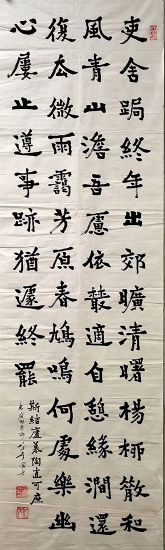 吏舍跼終年出郊曠清曙楊栁散和
風青山澹吾慮依叢適自憩緣澗還
復去微雨靄芳原春鳩鳴何處樂幽
心屢止遵事跡猶遽終罷
斯結廬慕陶直可庶